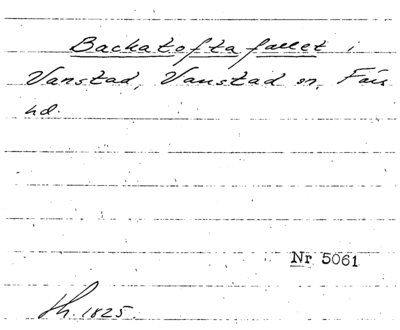 Backatoftafallet i
Vanstad, Vanstad sn, Färs
hd.
Nr 5061
Th. 1825.